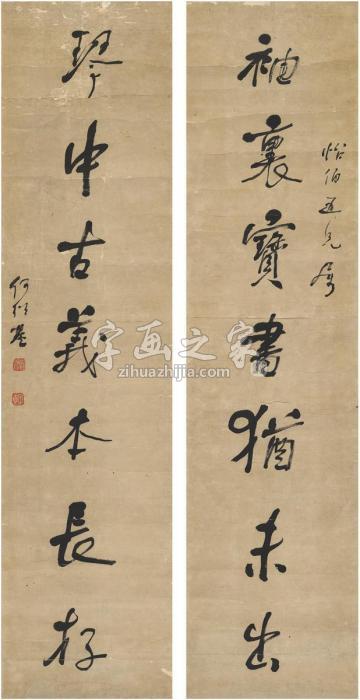 怡伯五兄属
袖裏寶書猶未出
琴中古義本長存
何绍基
字画之家
zihuazhijia.com